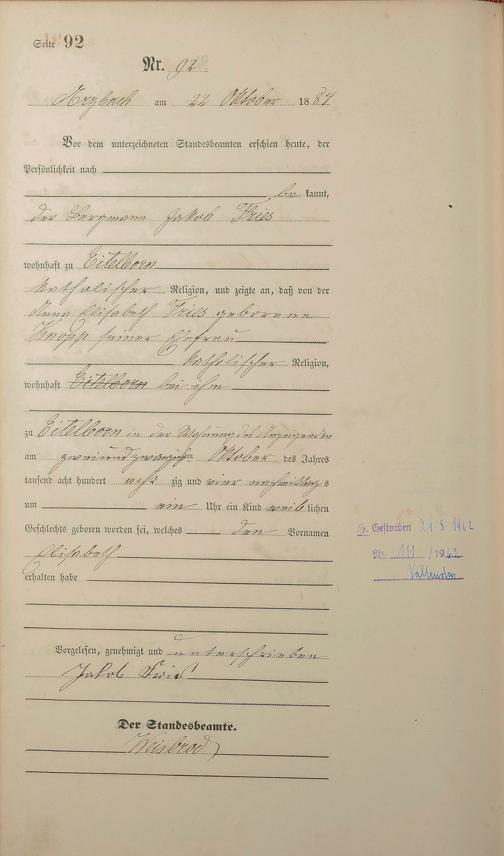 Seite 92
Nr. 92
Arzbach am 22 Oktober 1884
Vor dem unterzeichneten Standesbeamten erschien heute, der
Persönlichkeit nach
be kannt,
der Bergmann Jakob Fries
wohnhaft zu Eitelborn
katholischer Religion, und zeigte an, daß von der
Anna Elisabeth Fries geborene
Knopp seiner Ehefrau
katholischer Religion,
wohnhaft Eitelborn bei ihm
zu Eitelborn in der Wohnung des Anzeigenden
am zweiundzwanzigsten Oktober des Jahres
tausend acht hundert acht zig und vier nachmittags
um ein Uhr ein Kind weib lichen
Geschlechts geboren worden sei, welches den Vornamen
Elisabeth
erhalten habe
Vorgelesen, genehmigt und unterschrieben
Jakob Fries
Der Standesbeamte.
Weisbrod
Gestorben 29.8.1962
Nr. 111 / 1962
Vallendar